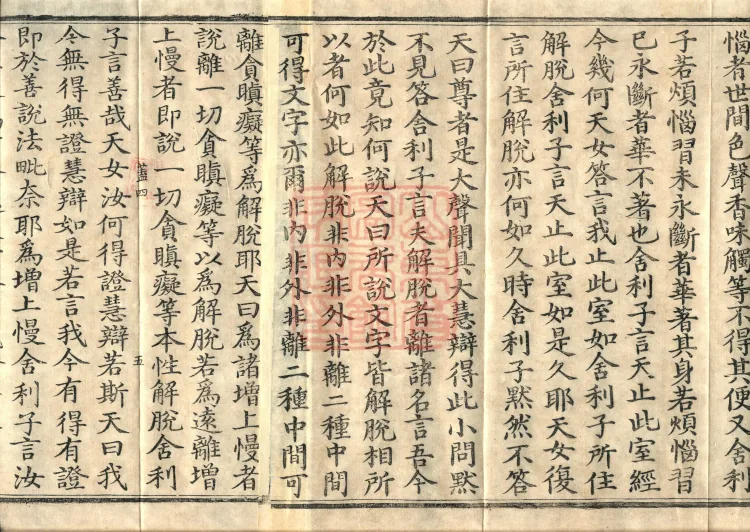 惱者世間色聲香味觸等不得其便又舍利
子若煩惱習未永斷者華著其身若煩惱習
已永斷者華不著也舍利子言天止此室經
今幾何天女答言我止此室如舍利子所住
解脫舍利子言天止此室如是久耶天女復
言所住解脫亦何如久時舍利子默然不答
天曰尊者是大聲聞具大慧辯得此小問默
不見答舍利子言夫解脫者離諸名言吾今
於此竟知何說天曰所說文字皆解脫相所
以者何如此解脫非內非外非離二種中間
可得文字亦爾非內非外非離二種中間可
離貪瞋癡等爲解脫耶天曰爲諸增上慢者
說離一切貪瞋癡等以爲解脫若爲遠離增
上慢者即說一切貪瞋癡等本性解脫舍利
蓋四
五
子言善哉天女汝何得證慧辯若斯天曰我
今無得無證慧辯如是若言我今有得有證
即於善說法毗奈耶爲增上慢舍利子言汝